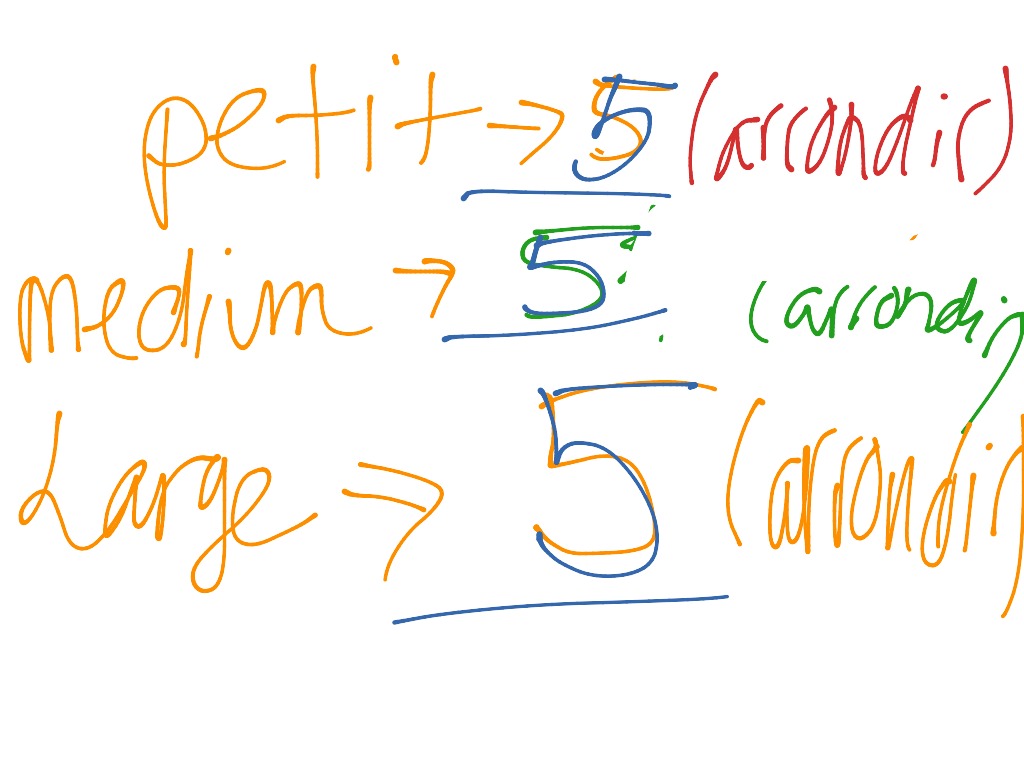 petit → 5 (arrondir)
medium → 5 (arrondir
Large → 5 (arrondir